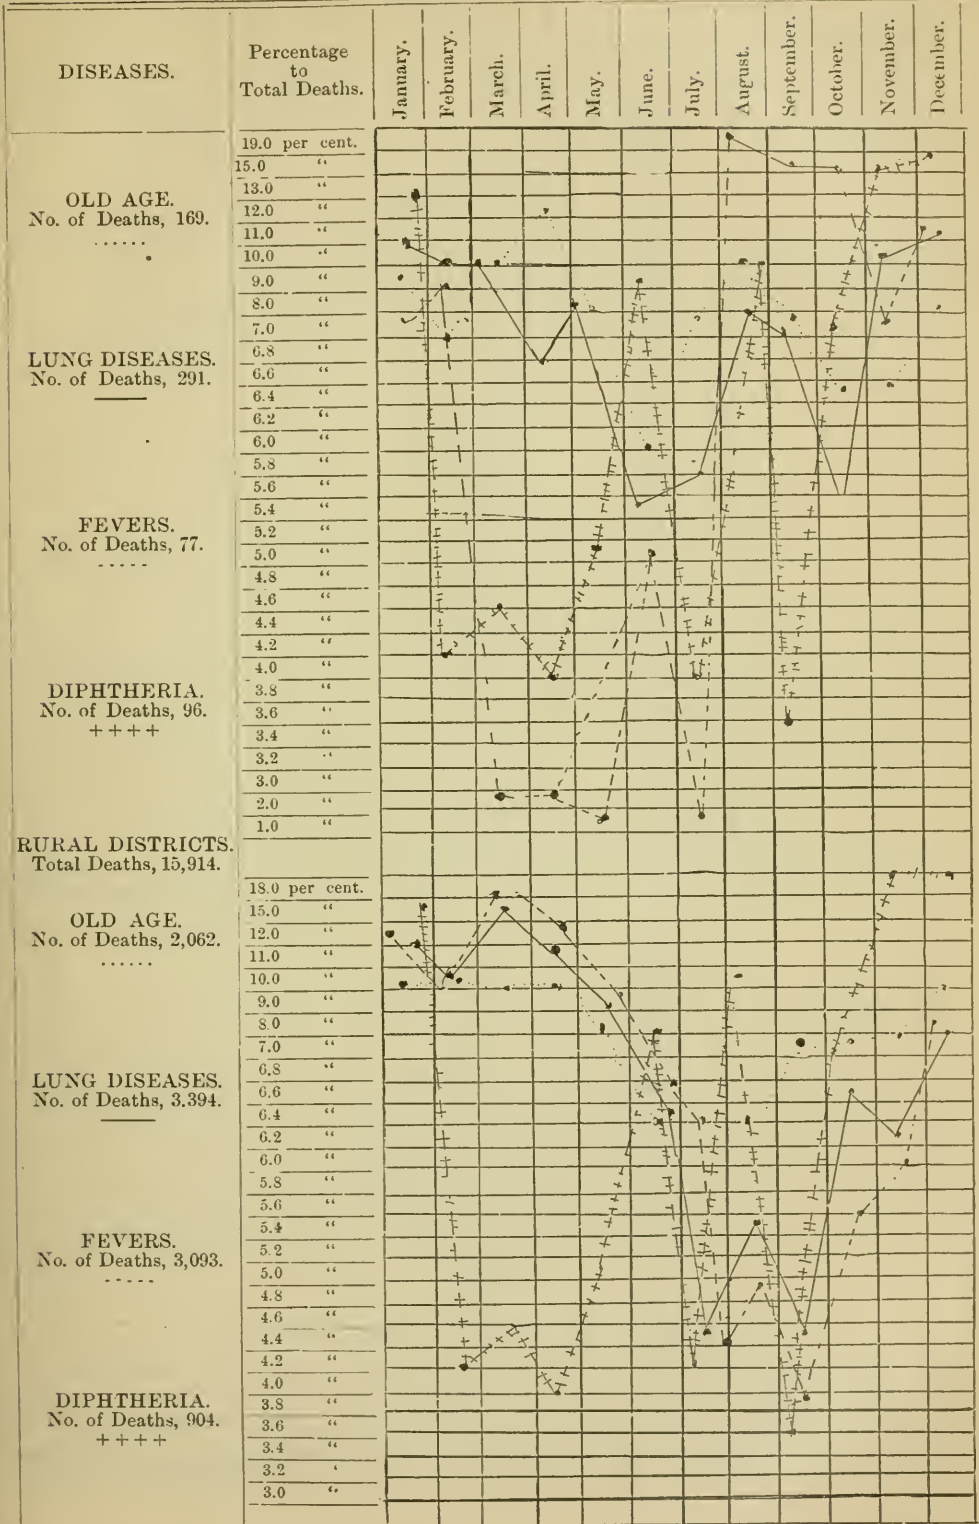 DISEASES.
Percentage
to
Total Deaths.
January.
February.
March.
April.
May.
June.
July.
August.
September.
October.
November.
December.
OLD AGE.
No. of Deaths, 169.
......
LUNG DISEASES.
No. of Deaths, 291.
FEVERS.
No. of Deaths, 77.
-----
DIPHTHERIA.
No. of Deaths, 96.
++++
19.0 per cent.
15.0 “
13.0 “
12.0 “
11.0 “
10.0 “
9.0 “
8.0 “
7.0 “
6.8 “
6.6 “
6.4 “
6.2 “
6.0 “
5.8 “
5.6 “
5.4 “
5.2 “
5.0 “
4.8 “
4.6 “
4.4 “
4.2 “
4.0 “
3.8 “
3.6 “
3.4 “
3.2 “
3.0 “
2.0 “
1.0 “
RURAL DISTRICTS.
Total Deaths, 15,914.
OLD AGE.
No. of Deaths, 2,062.
......
LUNG DISEASES.
No. of Deaths, 3.394.
FEVERS.
No. of Deaths, 3,093.
-----
DIPHTHERIA.
No. of Deaths, 904.
++++
18.0 per cent.
15.0 “
12.0 “
11.0 “
10.0 “
9.0 “
8.0 “
7.0 “
6.8 “
6.6 “
6.4 “
6.2 “
6.0 “
5.8 “
5.6 “
5.4 “
5.2 “
5.0 “
4.8 “
4.6 “
4.4 “
4.2 “
4.0 “
3.8 “
3.6 “
3.4 “
3.2 “
3.0 “